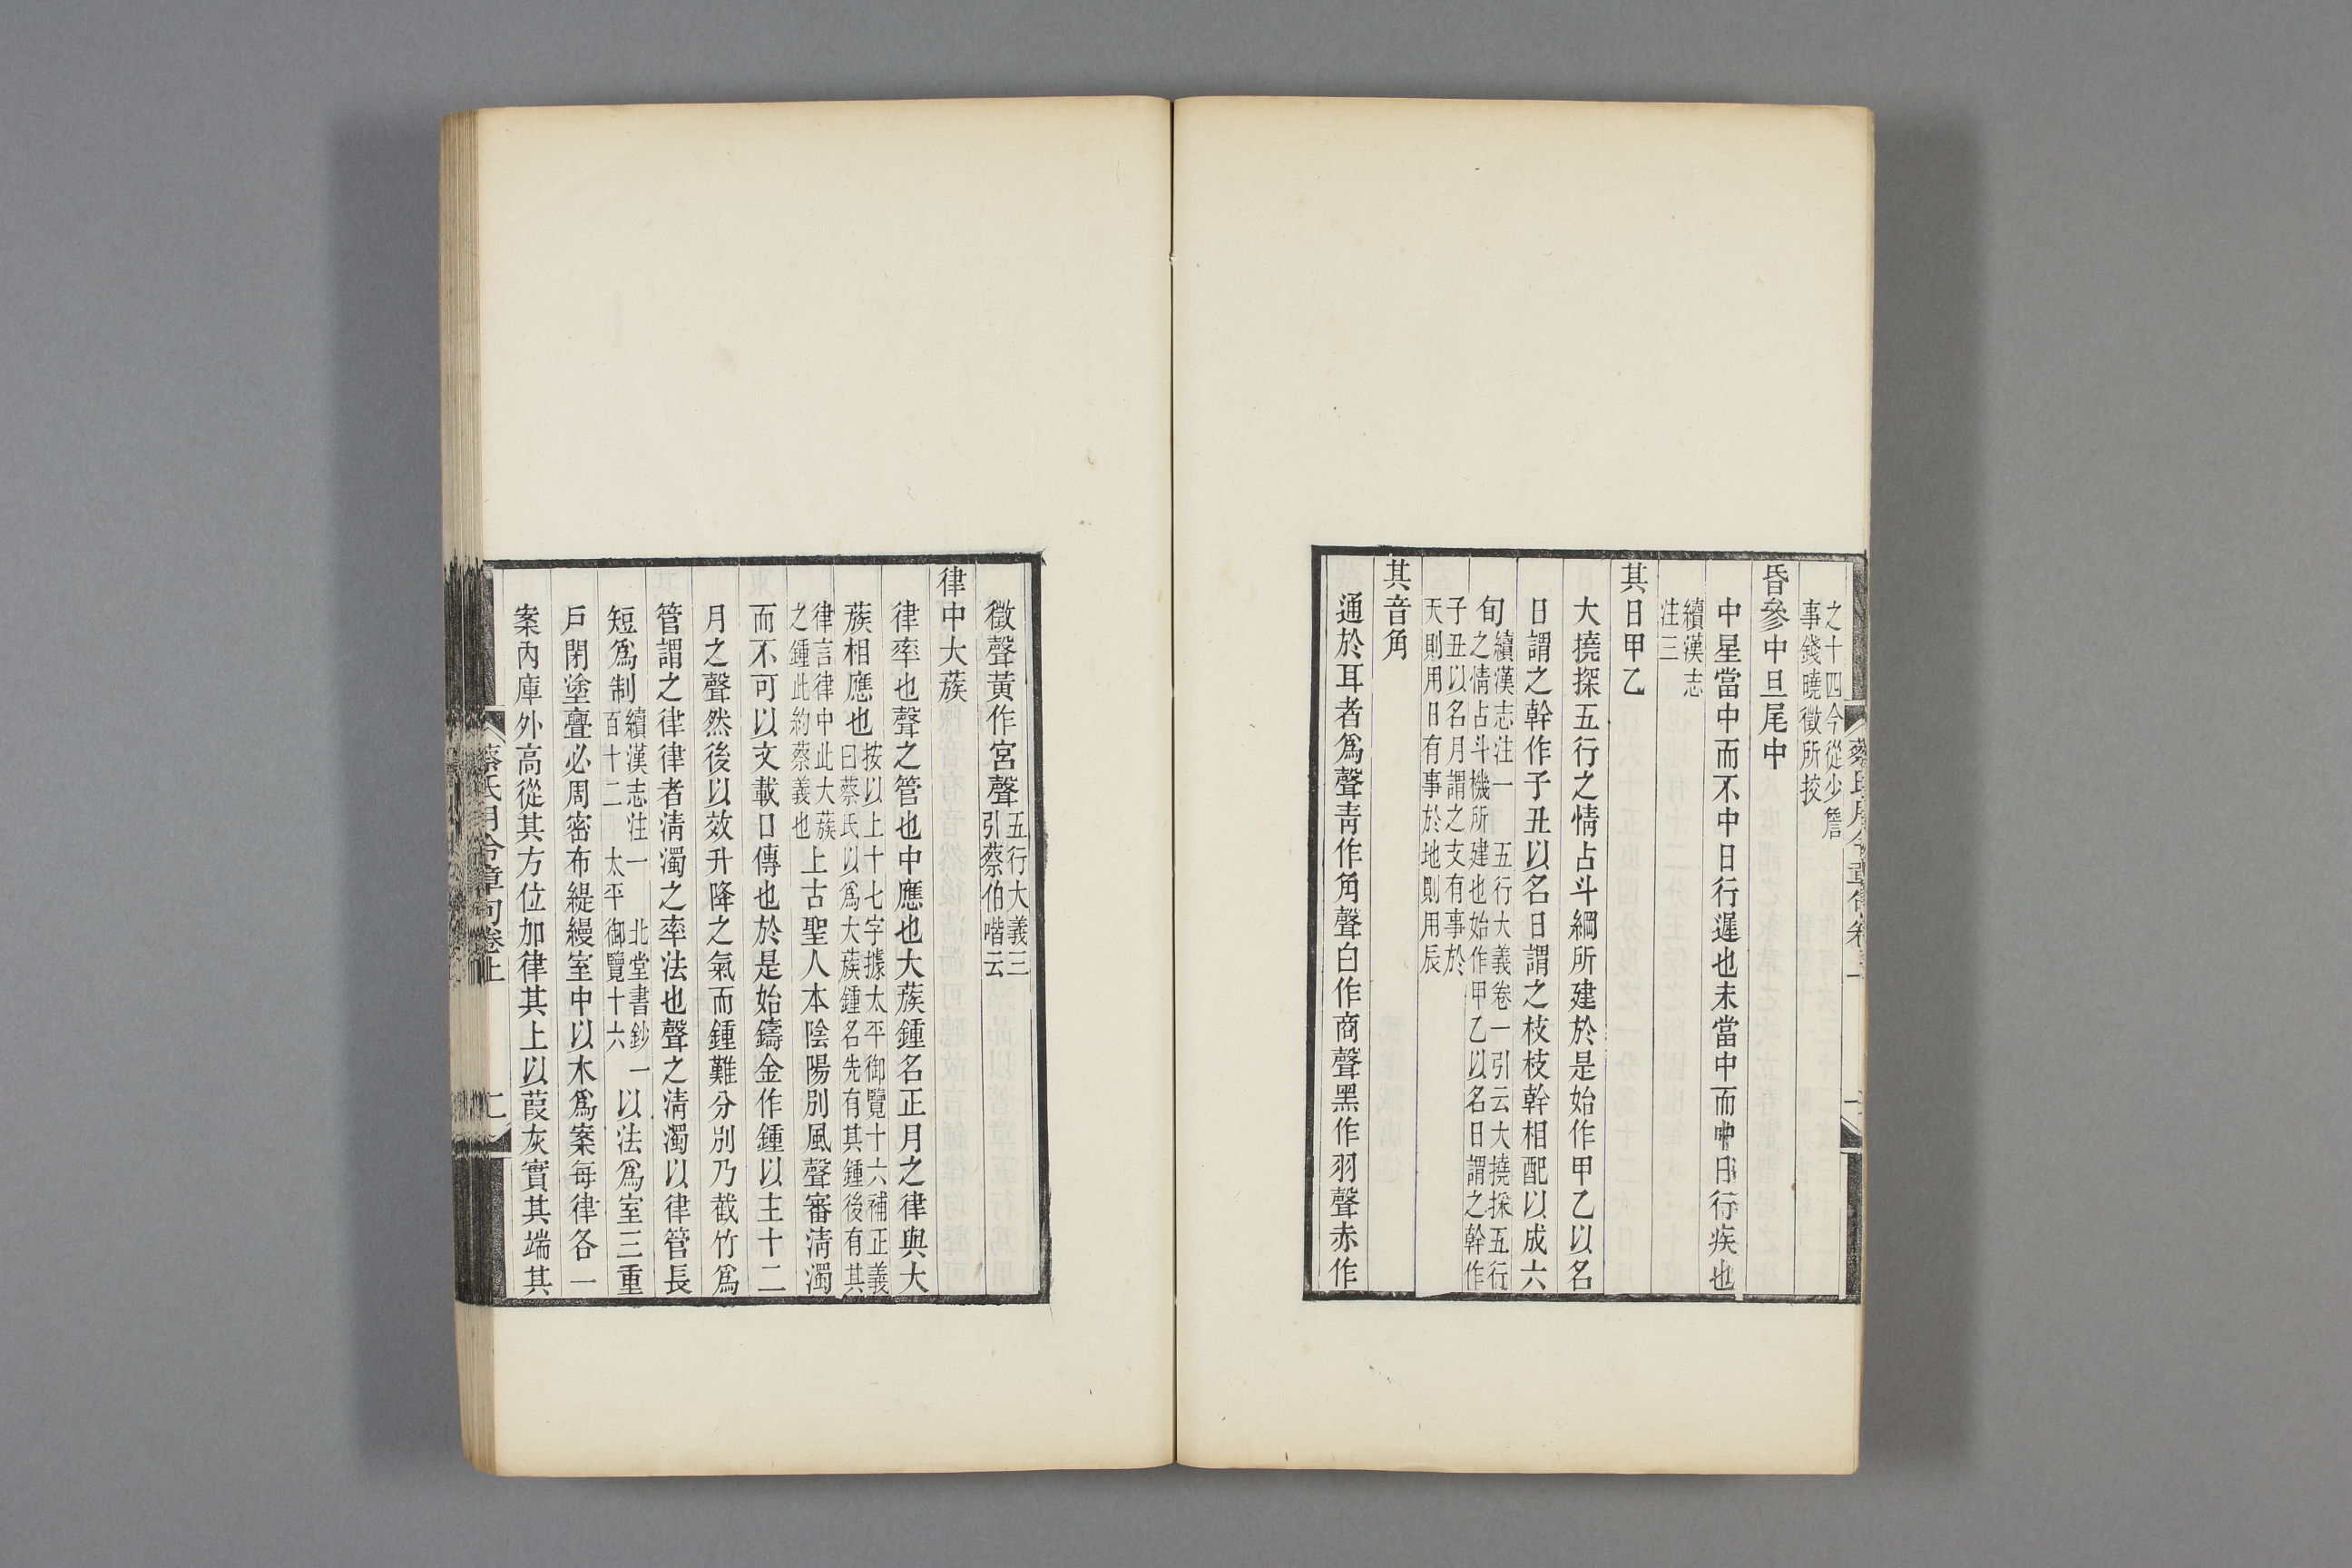 之十四今從少詹
事錢曉徵所挍
昏參中旦尾中
中星當中而不中日行遲也未當中而中日行疾也
續漢志
注三
其日甲乙
大撓探五行之情占斗綱所建於是始作甲乙以名
日謂之幹作子丑以名日謂之枝枝幹相配以成六
旬續漢志注一 五行大義卷一引云大撓採五行
之情占斗機所建也始作甲乙以名日謂之幹作
子丑以名月謂之支有事於
天則用日有事於地則用辰
其音角
通於耳者爲聲靑作角聲白作商聲黑作羽聲赤作
徵聲黃作宮聲五行大義三
引蔡伯喈云
律中大蔟
律率也聲之管也中應也大蔟鍾名正月之律與大
蔟相應也按以上十七字據太平御覽十六補正義
曰蔡氏以爲大蔟鍾名先有其鍾後有其
律言律中此大蔟
之鍾此約蔡義也上古聖人本陰陽別風聲審淸濁
而不可以文載口傳也於是始鑄金作鍾以主十二
月之聲然後以效升降之氣而鍾難分別乃截竹爲
管謂之律律者淸濁之率法也聲之淸濁以律管長
短爲制續漢志注一 北堂書鈔一
百十二 太平御覽十六以法爲室三重
戶閉塗舋必周密布緹縵室中以木爲案每律各一
案內庫外高從其方位加律其上以葭灰實其端其
蔡氏月令章句卷上